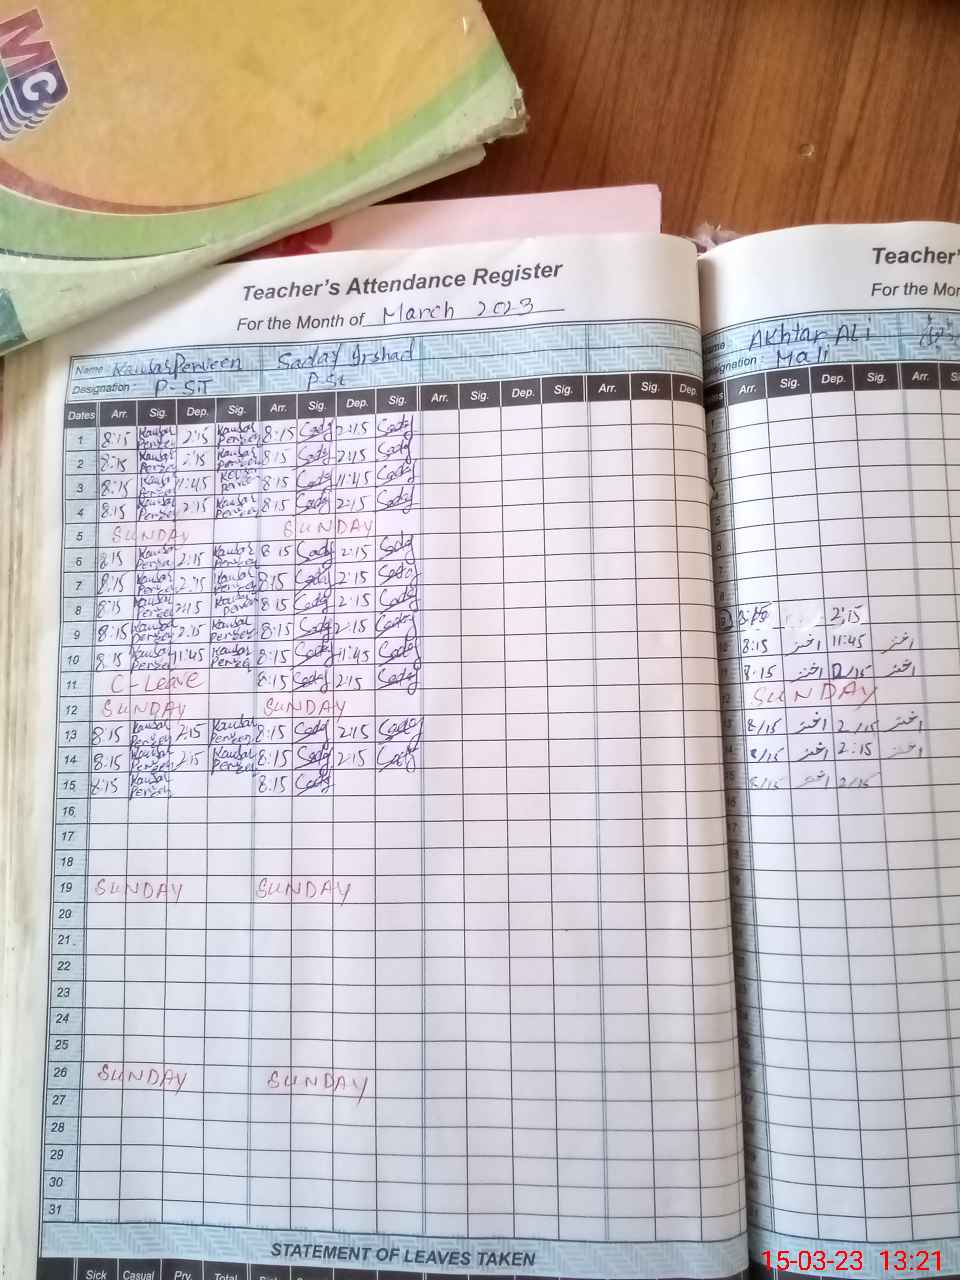 MC
Teacher's Attendance Register
For the Month of March 2023
Name: Kausar Perveen Saday Arshad
Designation: P-SiT P-St
Dates Arr. Sig. Dep. Sig. Arr. Sig. Dep. Sig. Arr. Sig. Dep. Sig. Arr. Sig. Dep.
1 8:15 Kausar Perveen 2:15 Kausar Perveen 8:15 2:15
2 8:15 Kausar Perveen 2:15 Kausar Perveen 8:15 2:15
3 8:15 Kausar 11:45 8:15 11:45
4 8:15 Kausar Perveen 2:15 Kausar Perveen 8:15 2:15
5 SUNDAY SUNDAY
6 8:15 Kausar Perveen 2:15 Kausar Perveen 8 15 2:15
7 8:15 Kausar Perveen 2:15 Kausar Perveen 8:15 2:15
8 8:15 Kausar Perveen 2:15 Kausar Perveen 8:15 2:15
9 8:15 Kausar Perveen 2:15 Kausar Perveen 8:15 2:15
10 8:15 Kausar Perveen 11:45 Kausar Perveen 8:15 11:45
11 C-Leave 8:15 2:15
12 SUNDAY SUNDAY
13 8:15 Kausar Perveen 2:15 Kausar Perveen 8:15 2:15
14 8:15 Kausar Perveen 2:15 Kausar Perveen 8:15 2:15
15 8:15 Kausar Perveen 8:15
16
17
18
19 SUNDAY SUNDAY
20
21
22
23
24
25
26 SUNDAY SUNDAY
27
28
29
30
31
STATEMENT OF LEAVES TAKEN
Sick Casual Prv. Total
Teacher'
For the Mon
Name: Akhtar Ali
Designation: Mali
Arr. Sig. Dep. Sig. Arr. Si
8:15 2:15
8:15 اختر 11:45 اختر
8:15 اختر 2/15 اختر
SUNDAY
8/15 اختر 2/15 اختر
8/15 اختر 2:15 اختر
8/15 اختر 2/15
15-03-23 13:21